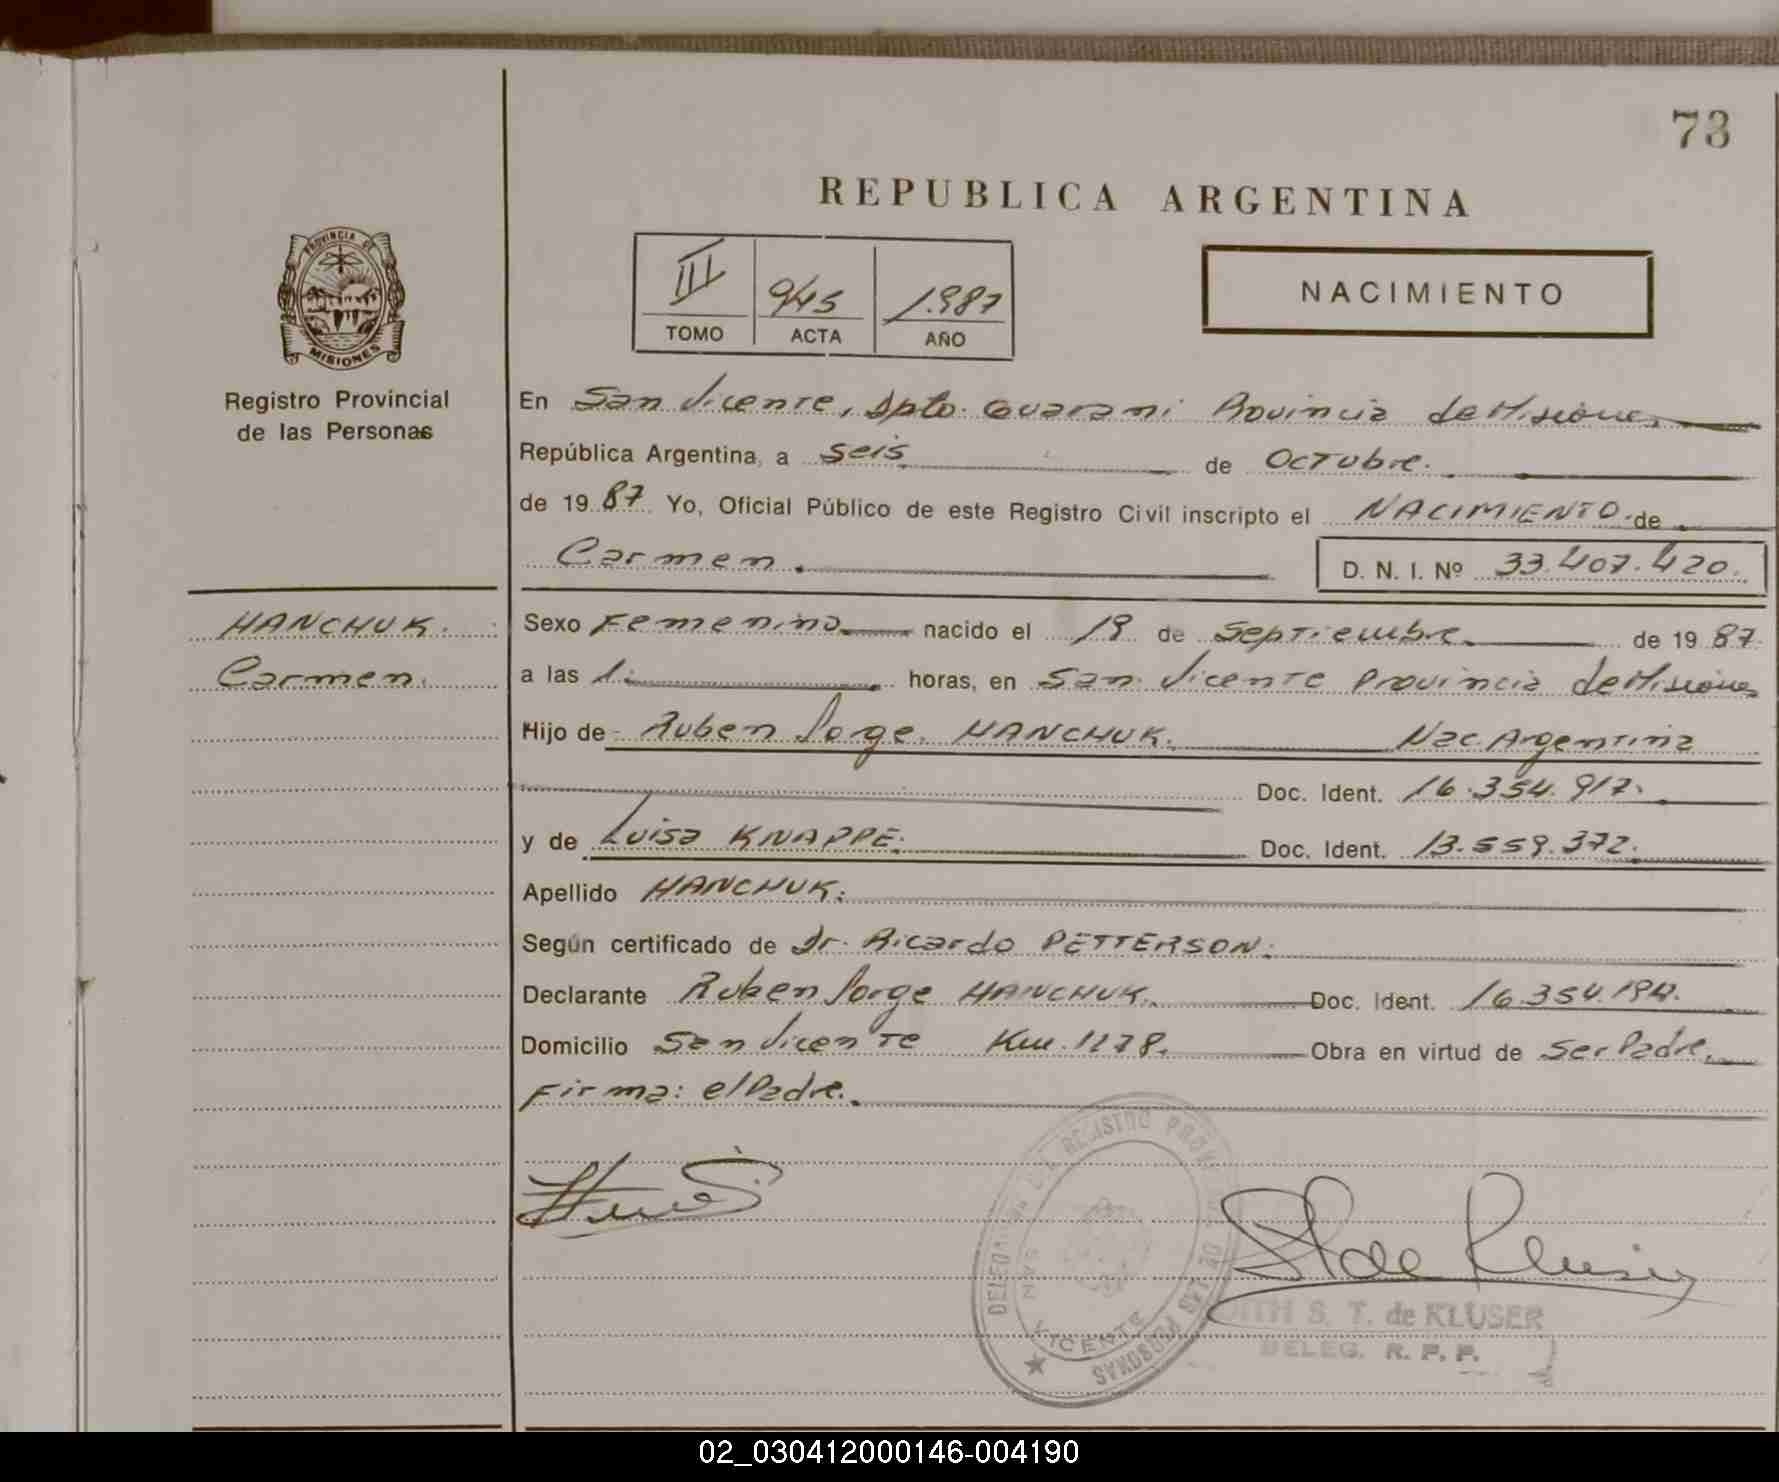 73
REPUBLICA ARGENTINA
PROVINCIA DE
MISIONES
III 945 1.987
TOMO ACTA AÑO
NACIMIENTO
Registro Provincial
de las Personas
En San Vicente, Dpto. Guarani Provincia de Misiones
República Argentina, a seis de Octubre.
de 19 87 Yo, Oficial Público de este Registro Civil inscripto el NACIMIENTO de
Carmen.
D. N. I. Nº 33.407.420.
HANCHUK.
Carmen.
Sexo Femenino nacido el 19 de Septiembre de 19 87.
a las 1: horas, en San Vicente Provincia de Misiones
Hijo de Ruben Jorge HANCHUK. Nac. Argentina
Doc. Ident. 16.354.917.
y de Luisa KNAPPE. Doc. Ident. 13.559.372.
Apellido HANCHUK.
Según certificado de Dr. Ricardo PETTERSON.
Declarante Ruben Jorge HANCHUK. Doc. Ident.
Domicilio San Vicente Km. 1278. Obra en virtud de Ser Padre.
Firma: el Padre.
DELEGACION DEL REGISTRO PROVINCIAL DE LAS PERSONAS
SAN VICENTE
S. T. de KLUSER
DELEG. R. P. P.
02_030412000146-004190